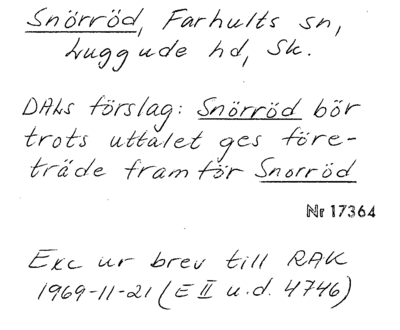 Snörröd, Farhults sn,
Luggude hd, Sk.
DALs förslag: Snörröd bör
trots uttalet ges före-
träde framför Snorröd
Nr 17364
Exc ur brev till RAK
1969-11-21 (E II u.d. 4746)